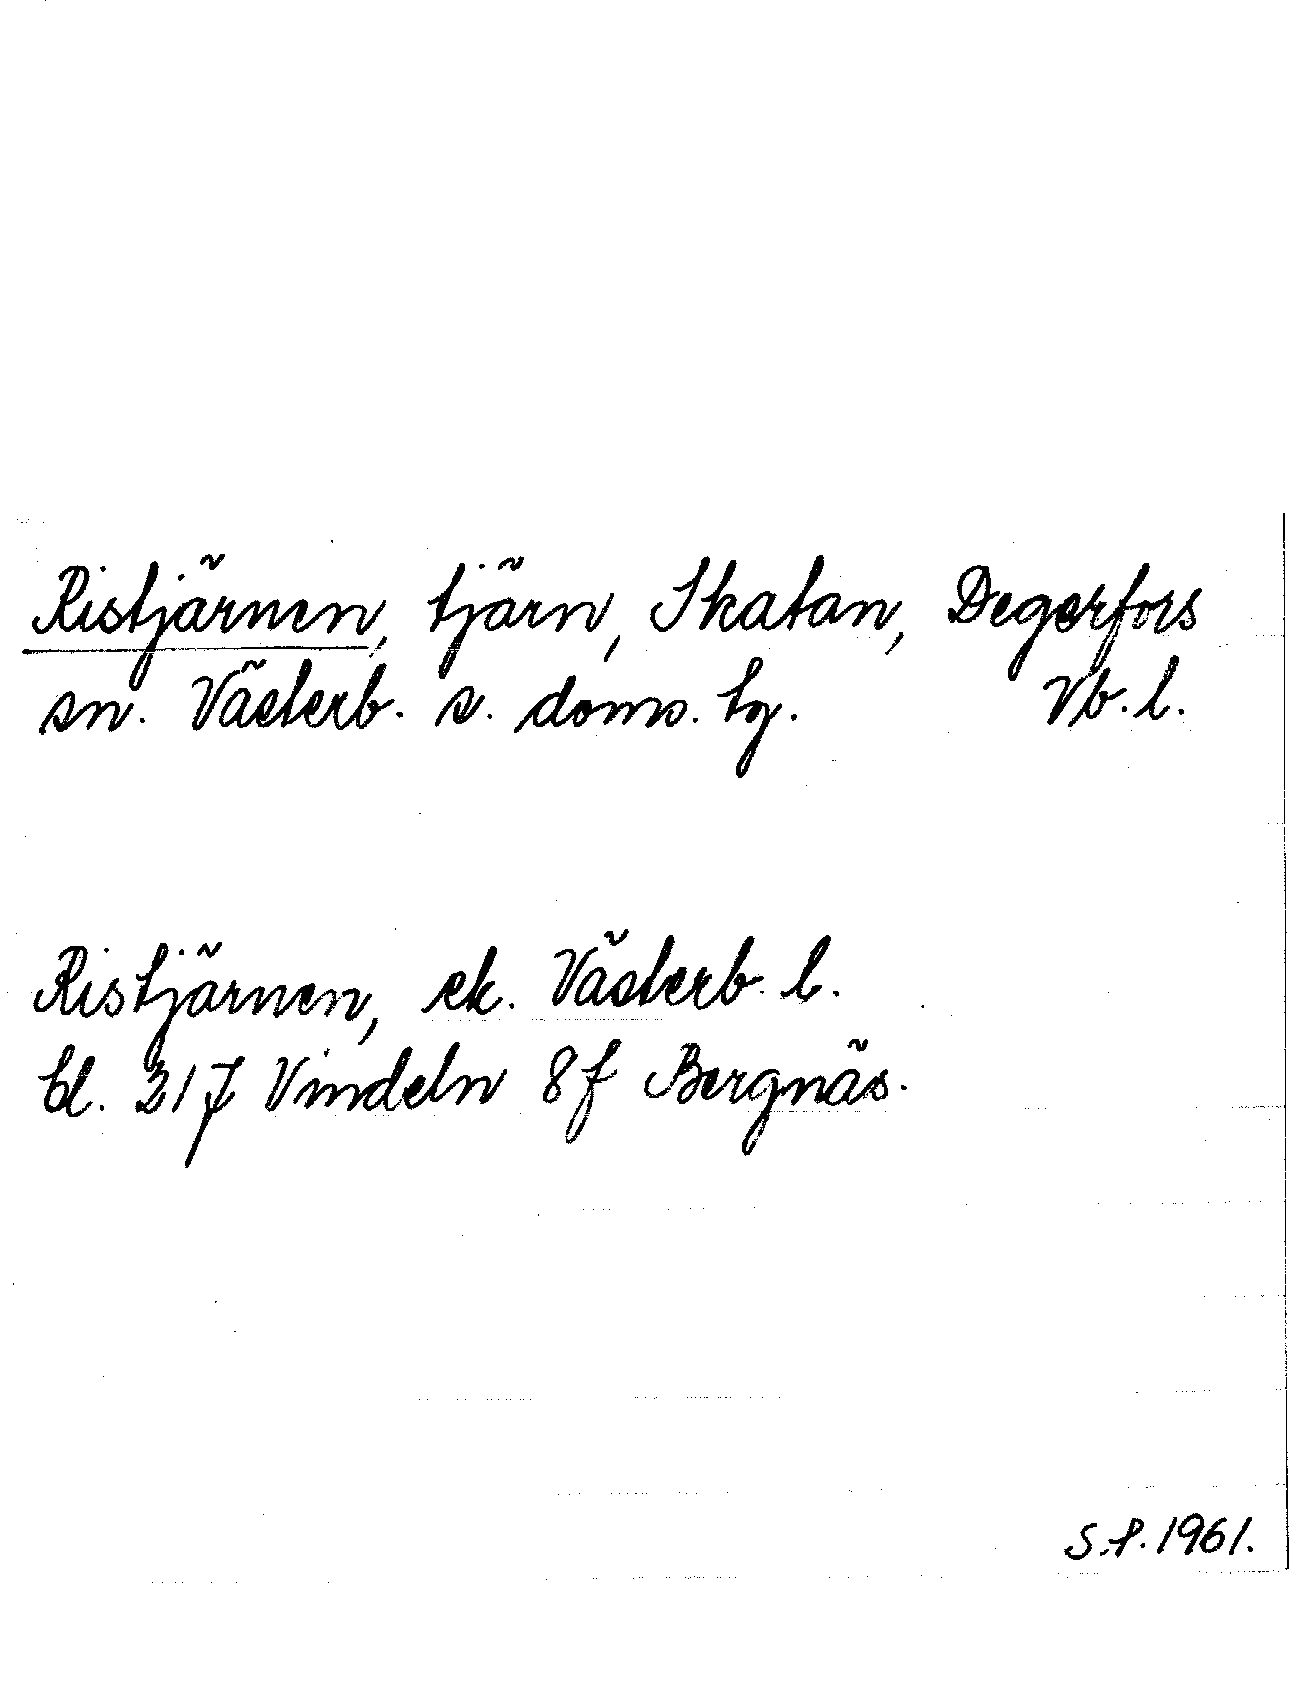 Ristjärnen, tjärn, Skatan, Degerfors
sn. Västerb. s. doms. tg. Vb. l.
Ristjärnen, ek. Västerb. l.
bl. 217 Vindeln 8f Bergnäs.
S.P. 1961.